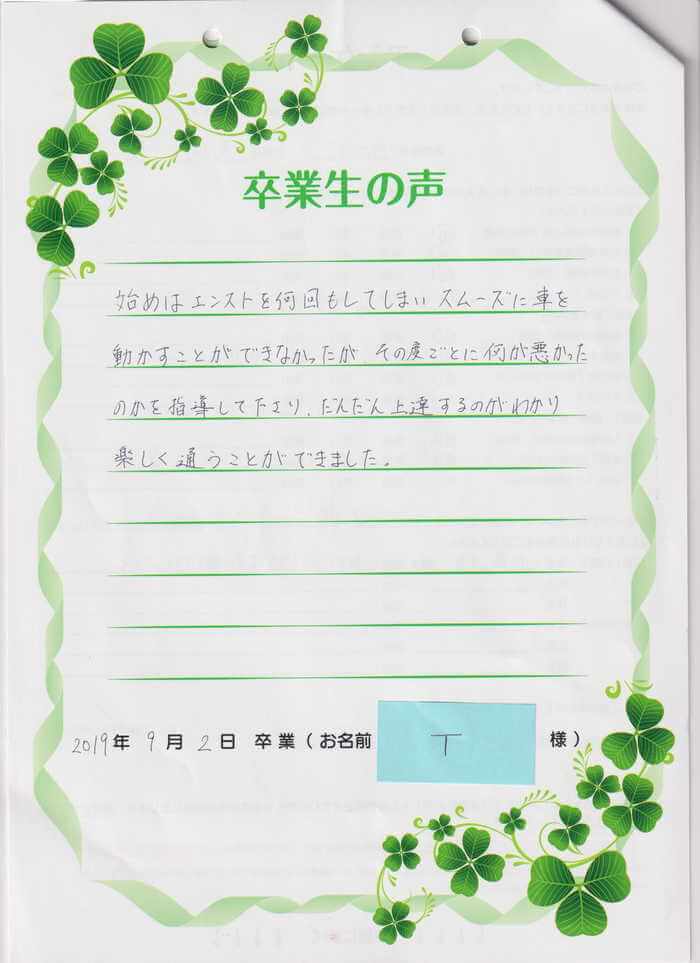 卒業生の声
始めはエンストを何回もしてしまいスムーズに車を
動かすことができなかったが、その度ごとに何が悪かった
のかを指導して下さり、だんだん上達するのがわかり
楽しく通うことができました。
2019年 9月 2日 卒業(お名前 T 様)